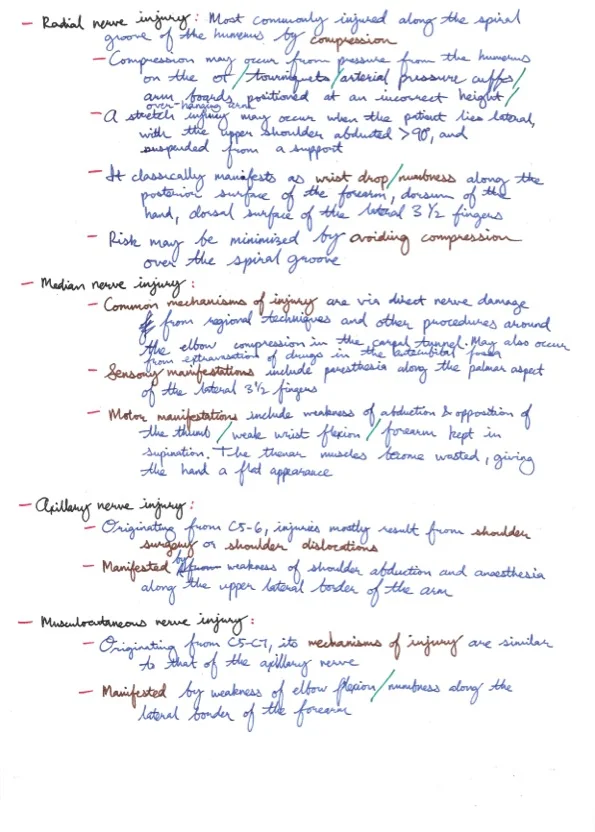 - Radial nerve injury: Most commonly injured along the spiral
groove of the humerus by compression
- Compression may occur from pressure from the humerus
on the OT/tourniquets/arterial pressure cuffs/
arm boards positioned at an incorrect height/
over-hanging arm
- A stretch injury may occur when the patient lies lateral,
with the upper shoulder abducted >90°, and
suspended from a support
- It classically manifests as wrist drop/numbness along the
posterior surface of the forearm, dorsum of the
hand, dorsal surface of the lateral 3 1/2 fingers
- Risk may be minimized by avoiding compression
over the spiral groove
- Median nerve injury:
- Common mechanisms of injury are via direct nerve damage
from regional techniques and other procedures around
the elbow compression in the carpal tunnel. May also occur
from extravasation of drugs in the antecubital fossa
- Sensory manifestations include paresthesia along the palmar aspect
of the lateral 3 1/2 fingers
- Motor manifestations include weakness of abduction & opposition of
the thumb/weak wrist flexion/forearm kept in
supination. The thenar muscles become wasted, giving
the hand a flat appearance
- Axillary nerve injury:
- Originating from C5-6, injuries mostly result from shoulder
surgery or shoulder dislocations
- Manifested by weakness of shoulder abduction and anaesthesia
along the upper lateral border of the arm
- Musculocutaneous nerve injury:
- Originating from C5-C7, its mechanisms of injury are similar
to that of the axillary nerve
- Manifested by weakness of elbow flexion/numbness along the
lateral border of the forearm